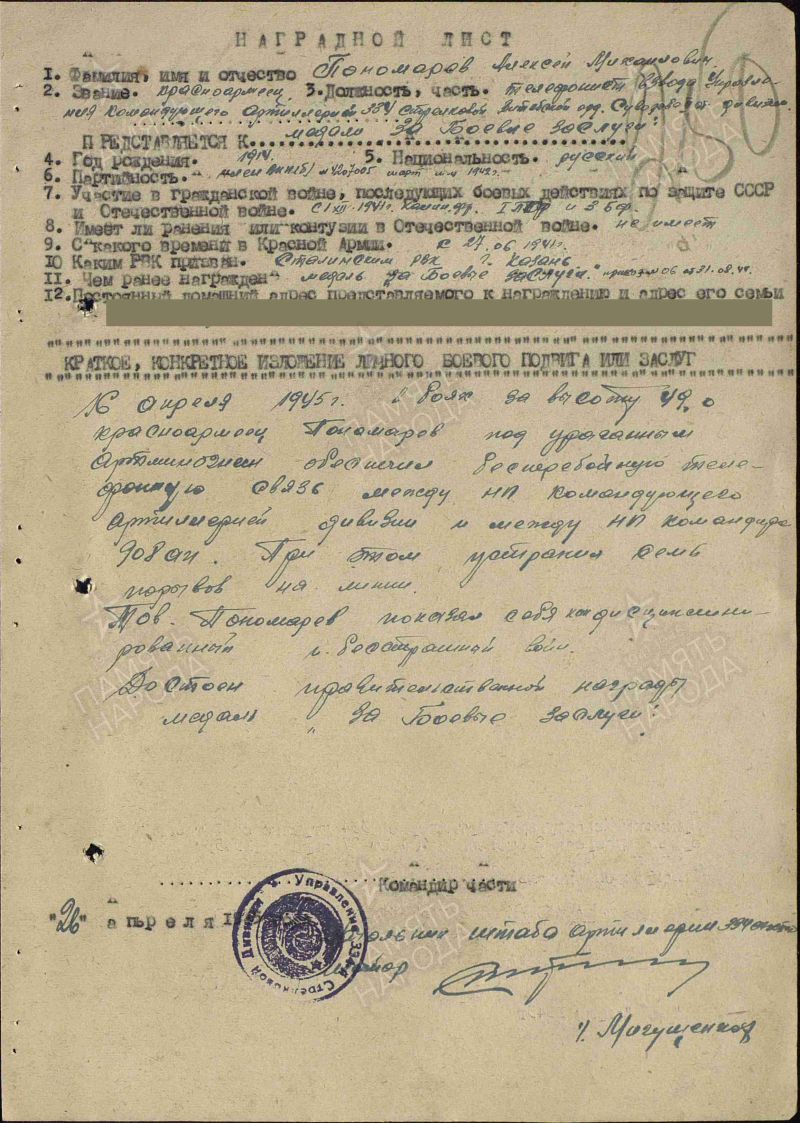 НАГРАДНОЙ ЛИСТ
1. Фамилия, имя и отчество Пономарев Алексей Михайлович
2. Звание. красноармеец 3. Должность, часть. телефонист взвода управле-
ния командующего артиллерией 334 стрелковой Витебской орд. Суворова дивизии
ПРЕДСТАВЛЯЕТСЯ К медали "За Боевые заслуги"
4. Год рождения. 1914. 5. Национальность. русский
6. Партийность. член ВКП(б) март 1942 г.
7. Участие в гражданской войне, последующих боевых действиях по защите СССР
и Отечественной войне. с 1941г. и 3 Бф.
8. Имеет ли ранения или контузии в Отечественной войне. не имеет
9. С какого времени в Красной Армии. с 27.06 1941г.
10 Каким РВК призван. Сталинским рвк г. Казань
11. Чем ранее награжден медаль "за Боевые заслуги" 06 от 31.08.44.
12. Постоянный домашний адрес представляемого к награждению и адрес его семьи
КРАТКОЕ, КОНКРЕТНОЕ ИЗЛОЖЕНИЕ ЛИЧНОГО БОЕВОГО ПОДВИГА ИЛИ ЗАСЛУГ
16 апреля 1945г. в боях за высоту 49,0
красноармеец Пономарев под ураганным
артминогнем обеспечил бесперебойную теле-
фонную связь между НП командующего
артиллерией дивизии и между НП командира
908 ап. При этом устранил семь
порывов на линии.
Тов. Пономарев показал себя как дисциплини-
рованный и бесстрашный воин.
Достоен правительственной награды
медаль "За Боевые заслуги".
Командир части
"26" апреля
Начальник штаба артиллерии 334
майор
Управление 334-й Стрелковой Дивизии
ПАМЯТЬ НАРОДА